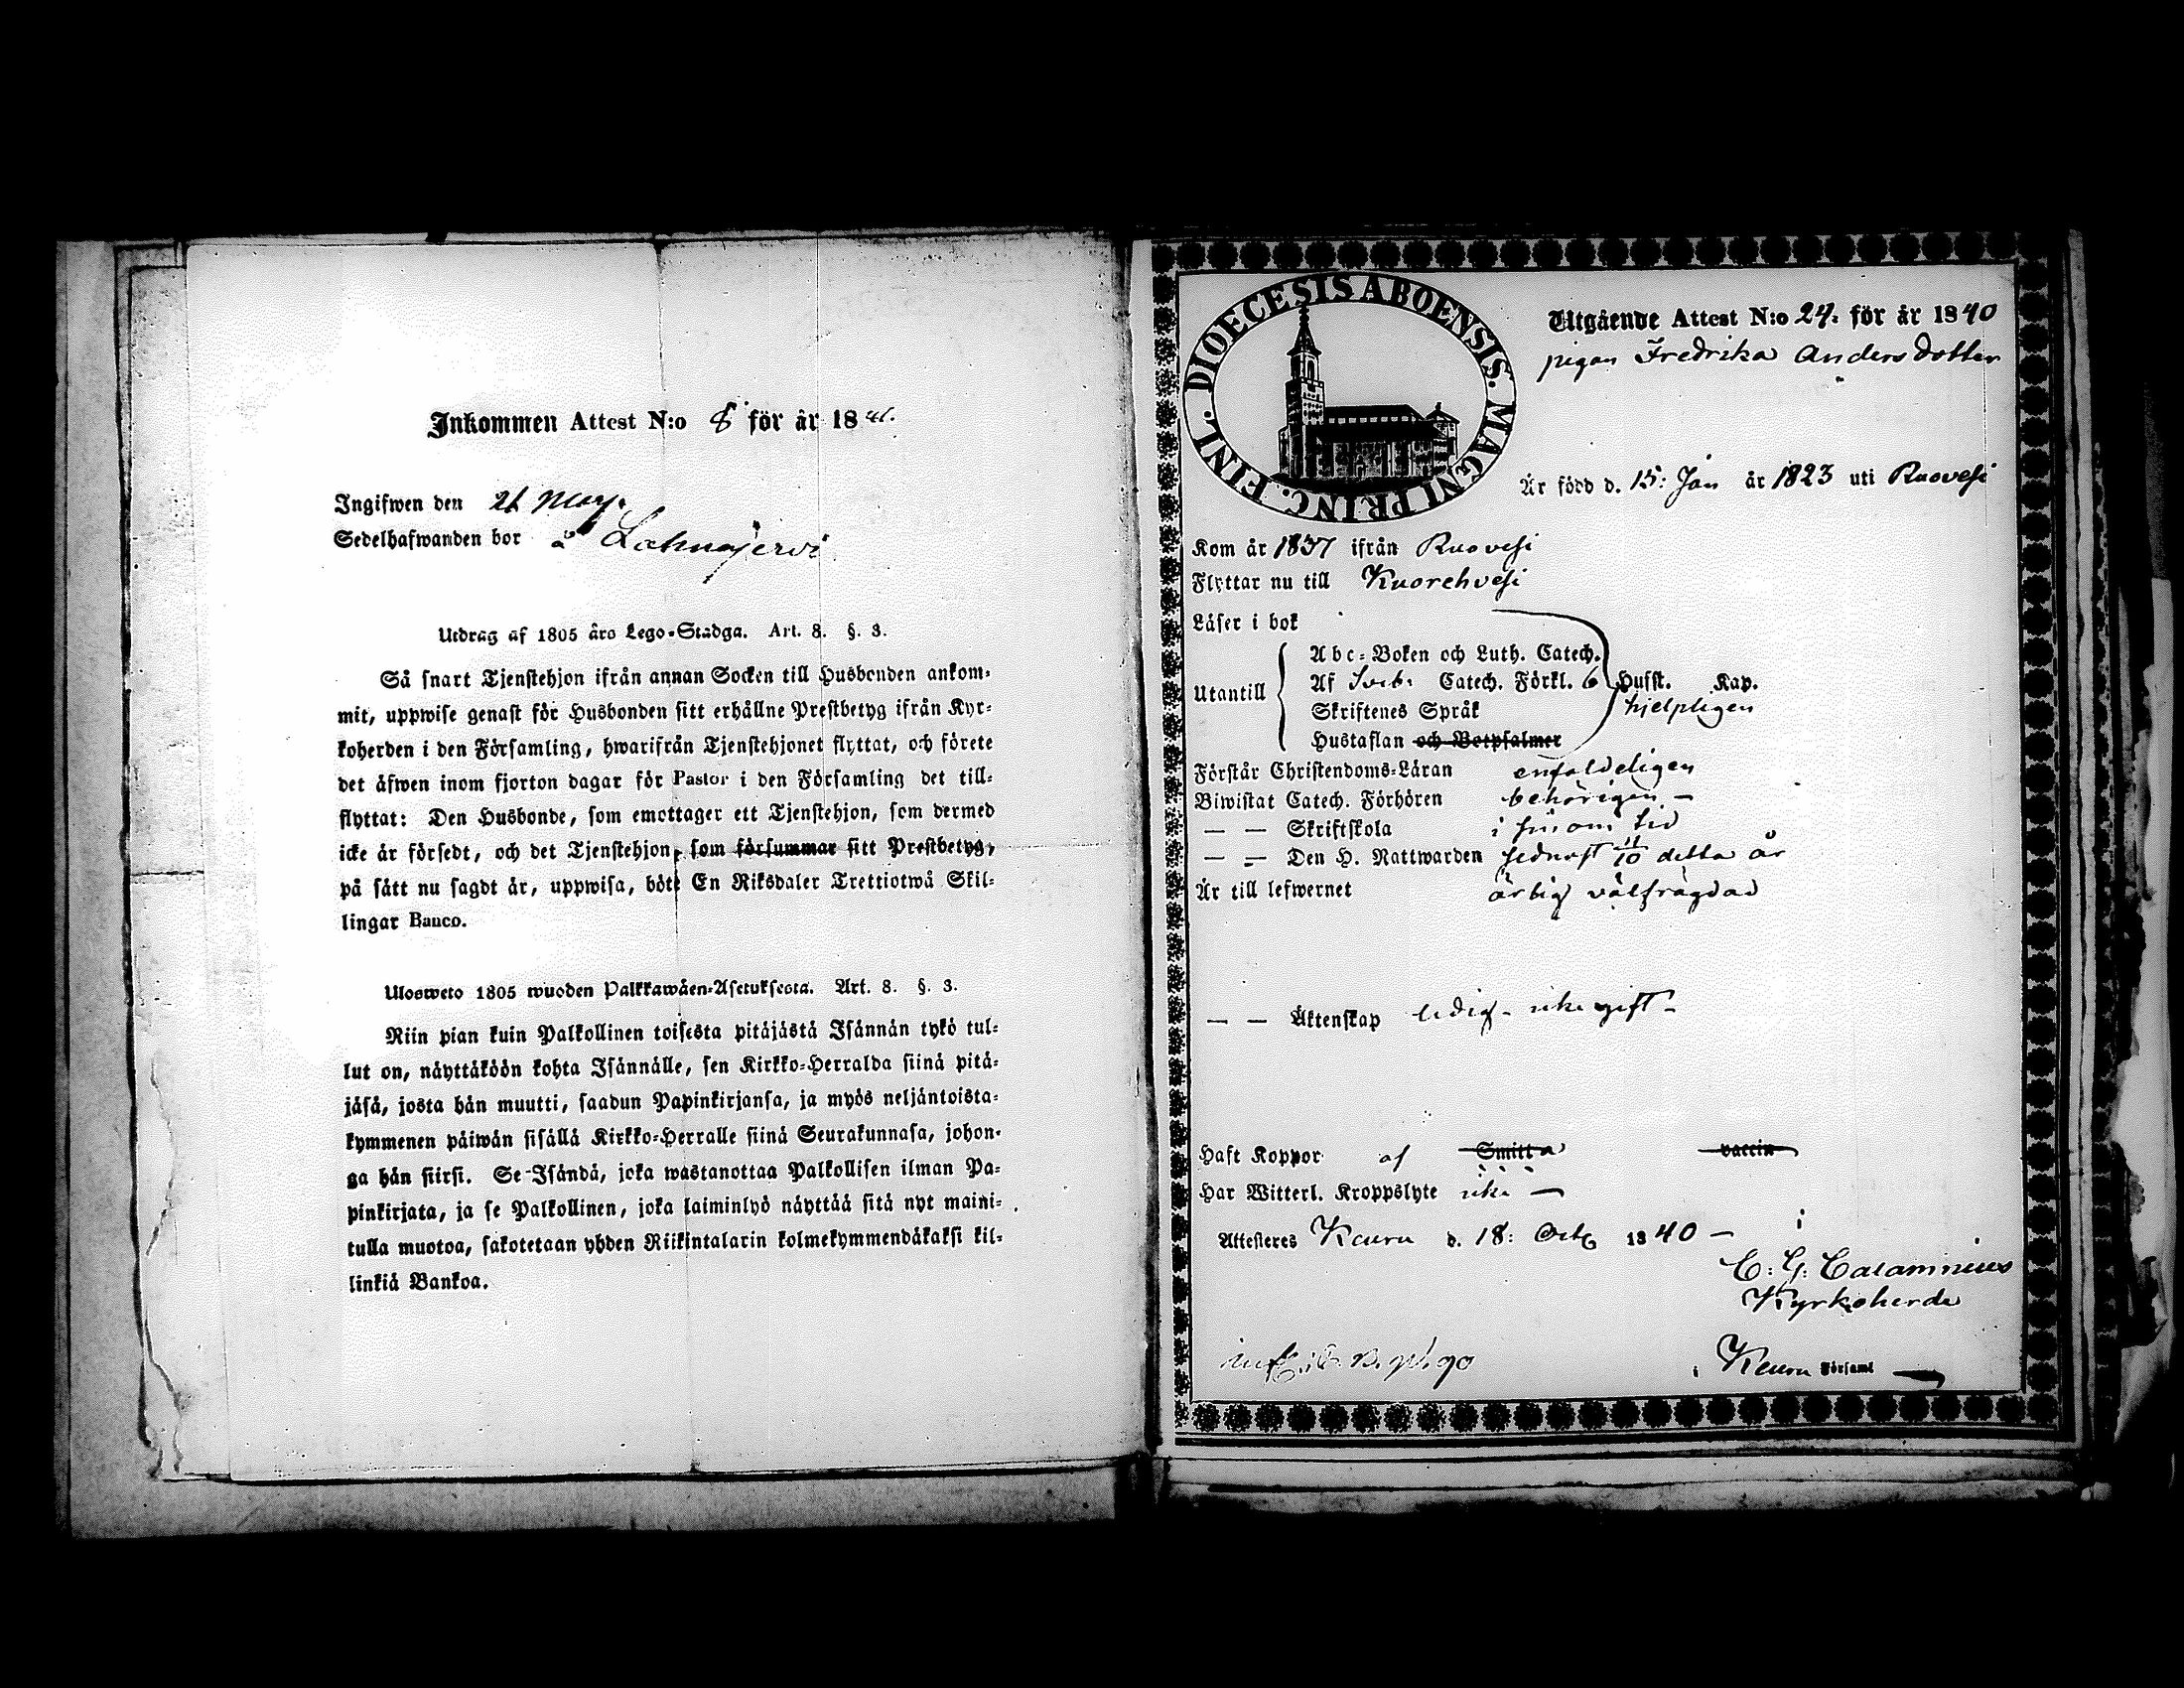 Inkommen Attest N:o 8 för år 1841.
Ingifwen den 21 May.
Sedelhafwanden bor å Lahnajervi
Utdrag af 1805 års Lego-Stadga. Art. 8. §. 3.
Så snart Tjenstehjon ifrån annan Socken till Husbonden ankom-
mit, uppwise genast för Husbonden sitt erhållne Prestbetyg ifrån Kyr-
koherden i den Församling, hwarifrån Tjenstehjonet flyttat, och förete
det äfwen inom fjorton dagar för Pastor i den Församling det till-
flyttat: Den Husbonde, som emottager ett Tjenstehjon, som dermed
icke är försedt, och det Tjenstehjon, som försummar sitt Prestbetyg,
på sätt nu sagdt är, uppwisa, böte En Riksdaler Trettiotwå Skil-
lingar Banco.
Ulosweto 1805 wuoden Palkkawäen-Asetuksesta. Art. 8. §. 3.
Niin pian kuin Palkollinen toisesta pitäjästä Isännän tykö tul-
lut on, näyttäköön kohta Isännälle, sen Kirkko-Herralda siinä pitä-
jäsä, josta hän muutti, saadun Papinkirjansa, ja myös neljäntoista-
kymmenen päiwän sisällä Kirkko-Herralle siinä Seurakunnasa, johon-
ga hän siirsi. Se Isändä, joka wastanottaa Palkollisen ilman Pa-
pinkirjata, ja se Palkollinen, joka laiminlyö näyttää sitä nyt maini-
tulla muotoa, sakotetaan yhden Riikintalarin kolmekymmendäkaksi kil-
linkiä Bankoa.
DIOECESIS ABOENSIS. MAGNI PRINC. FINL.
Utgående Attest N:o 24. för år 1840
pigan Fredrika Anders dotter
Är född d. 15: Jan år 1823 uti Ruovesi
Kom år 1837 ifrån Ruovesi
Flyttar nu till Kuorehvesi
Läser i bok
Utantill
Abc-Boken och Luth. Catech.
Af Sveb: Catech. Förkl. 6 Husst. Kap.
Skriftenes Språk hjelpligen
Hustaflan och Botpsalmer
Förstår Christendoms-Läran enfaldeligen
Biwistat Catech. Förhören behörigen —
— — Skriftskola i sinom tid
— — Den H. Nattwarden sednast 11/10 detta år
Är till lefwernet ärbig välfrägdad
— — Äktenskap ledig - icke gift -
Haft Koppor af Smitta vaccin
Har Witterl. Kroppslyte icke —
Attesteras Keuru d. 18: Octb 1840 —
C. G. Calamnius
Kyrkoherde
i Keuru Församl